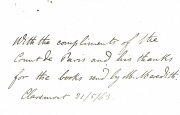 With the compliments of the
Comte de Paris and his thanks
for the books send by Mr Meredith.
Claremont 21/5/63